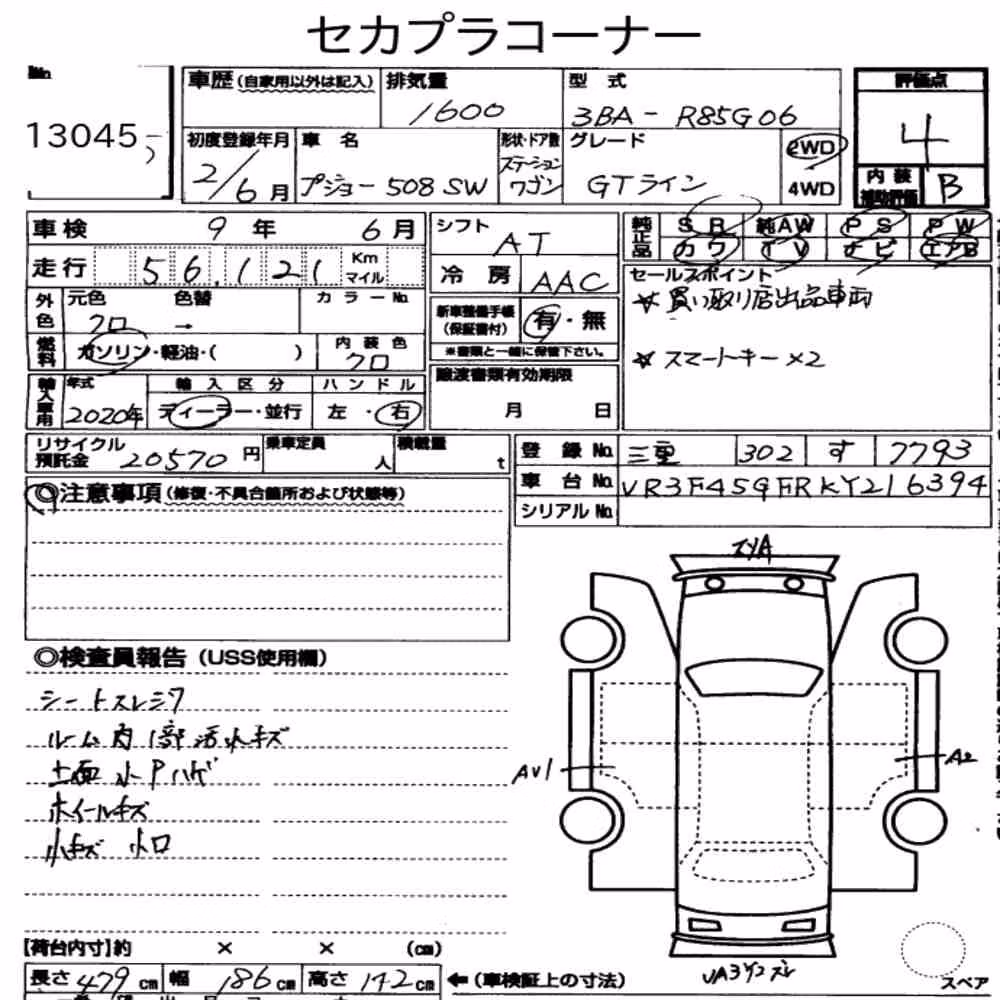 セカプラコーナー
13045
車歴(自家用以外は記入) 排気量 1600 型式 3BA-R85G06 評価点 4
初度登録年月 2/6月 車名 プジョー508SW 形状・ドア数 ステーションワゴン グレード GTライン 2WD 4WD 内装補助評価 B
車検 9年 6月 シフト AT 純正品 SR 純AW PS PW
走行 56,121 Km マイル 冷房 AAC カワ TV ナビ エアB
外色 元色 クロ 色替 → カラーNo. セールスポイント
☆買い取り店出品車両
新車整備手帳(保証書付) 有・無
※書類と一緒に保管下さい。
燃料 ガソリン・軽油・( ) 内装色 クロ
☆スマートキー×2
輸入車用 年式 2020年 輸入区分 ディーラー・並行 ハンドル 左・右 譲渡書類有効期限 月 日
リサイクル預託金 20570円 乗車定員 人 積載量 t
登録No. 三重 302 す 7793
車台No. VR3F45GFRKY216394
シリアルNo.
◎注意事項(修復・不具合箇所および状態等)
◎検査員報告(USS使用欄)
シートスレシワ
ルーム内1部汚れキズ
ホイールキズ
小キズ 小凹
AV1
A2
【荷台内寸】約 × × (cm)
長さ479cm 幅186cm 高さ142cm ←(車検証上の寸法)
スペア